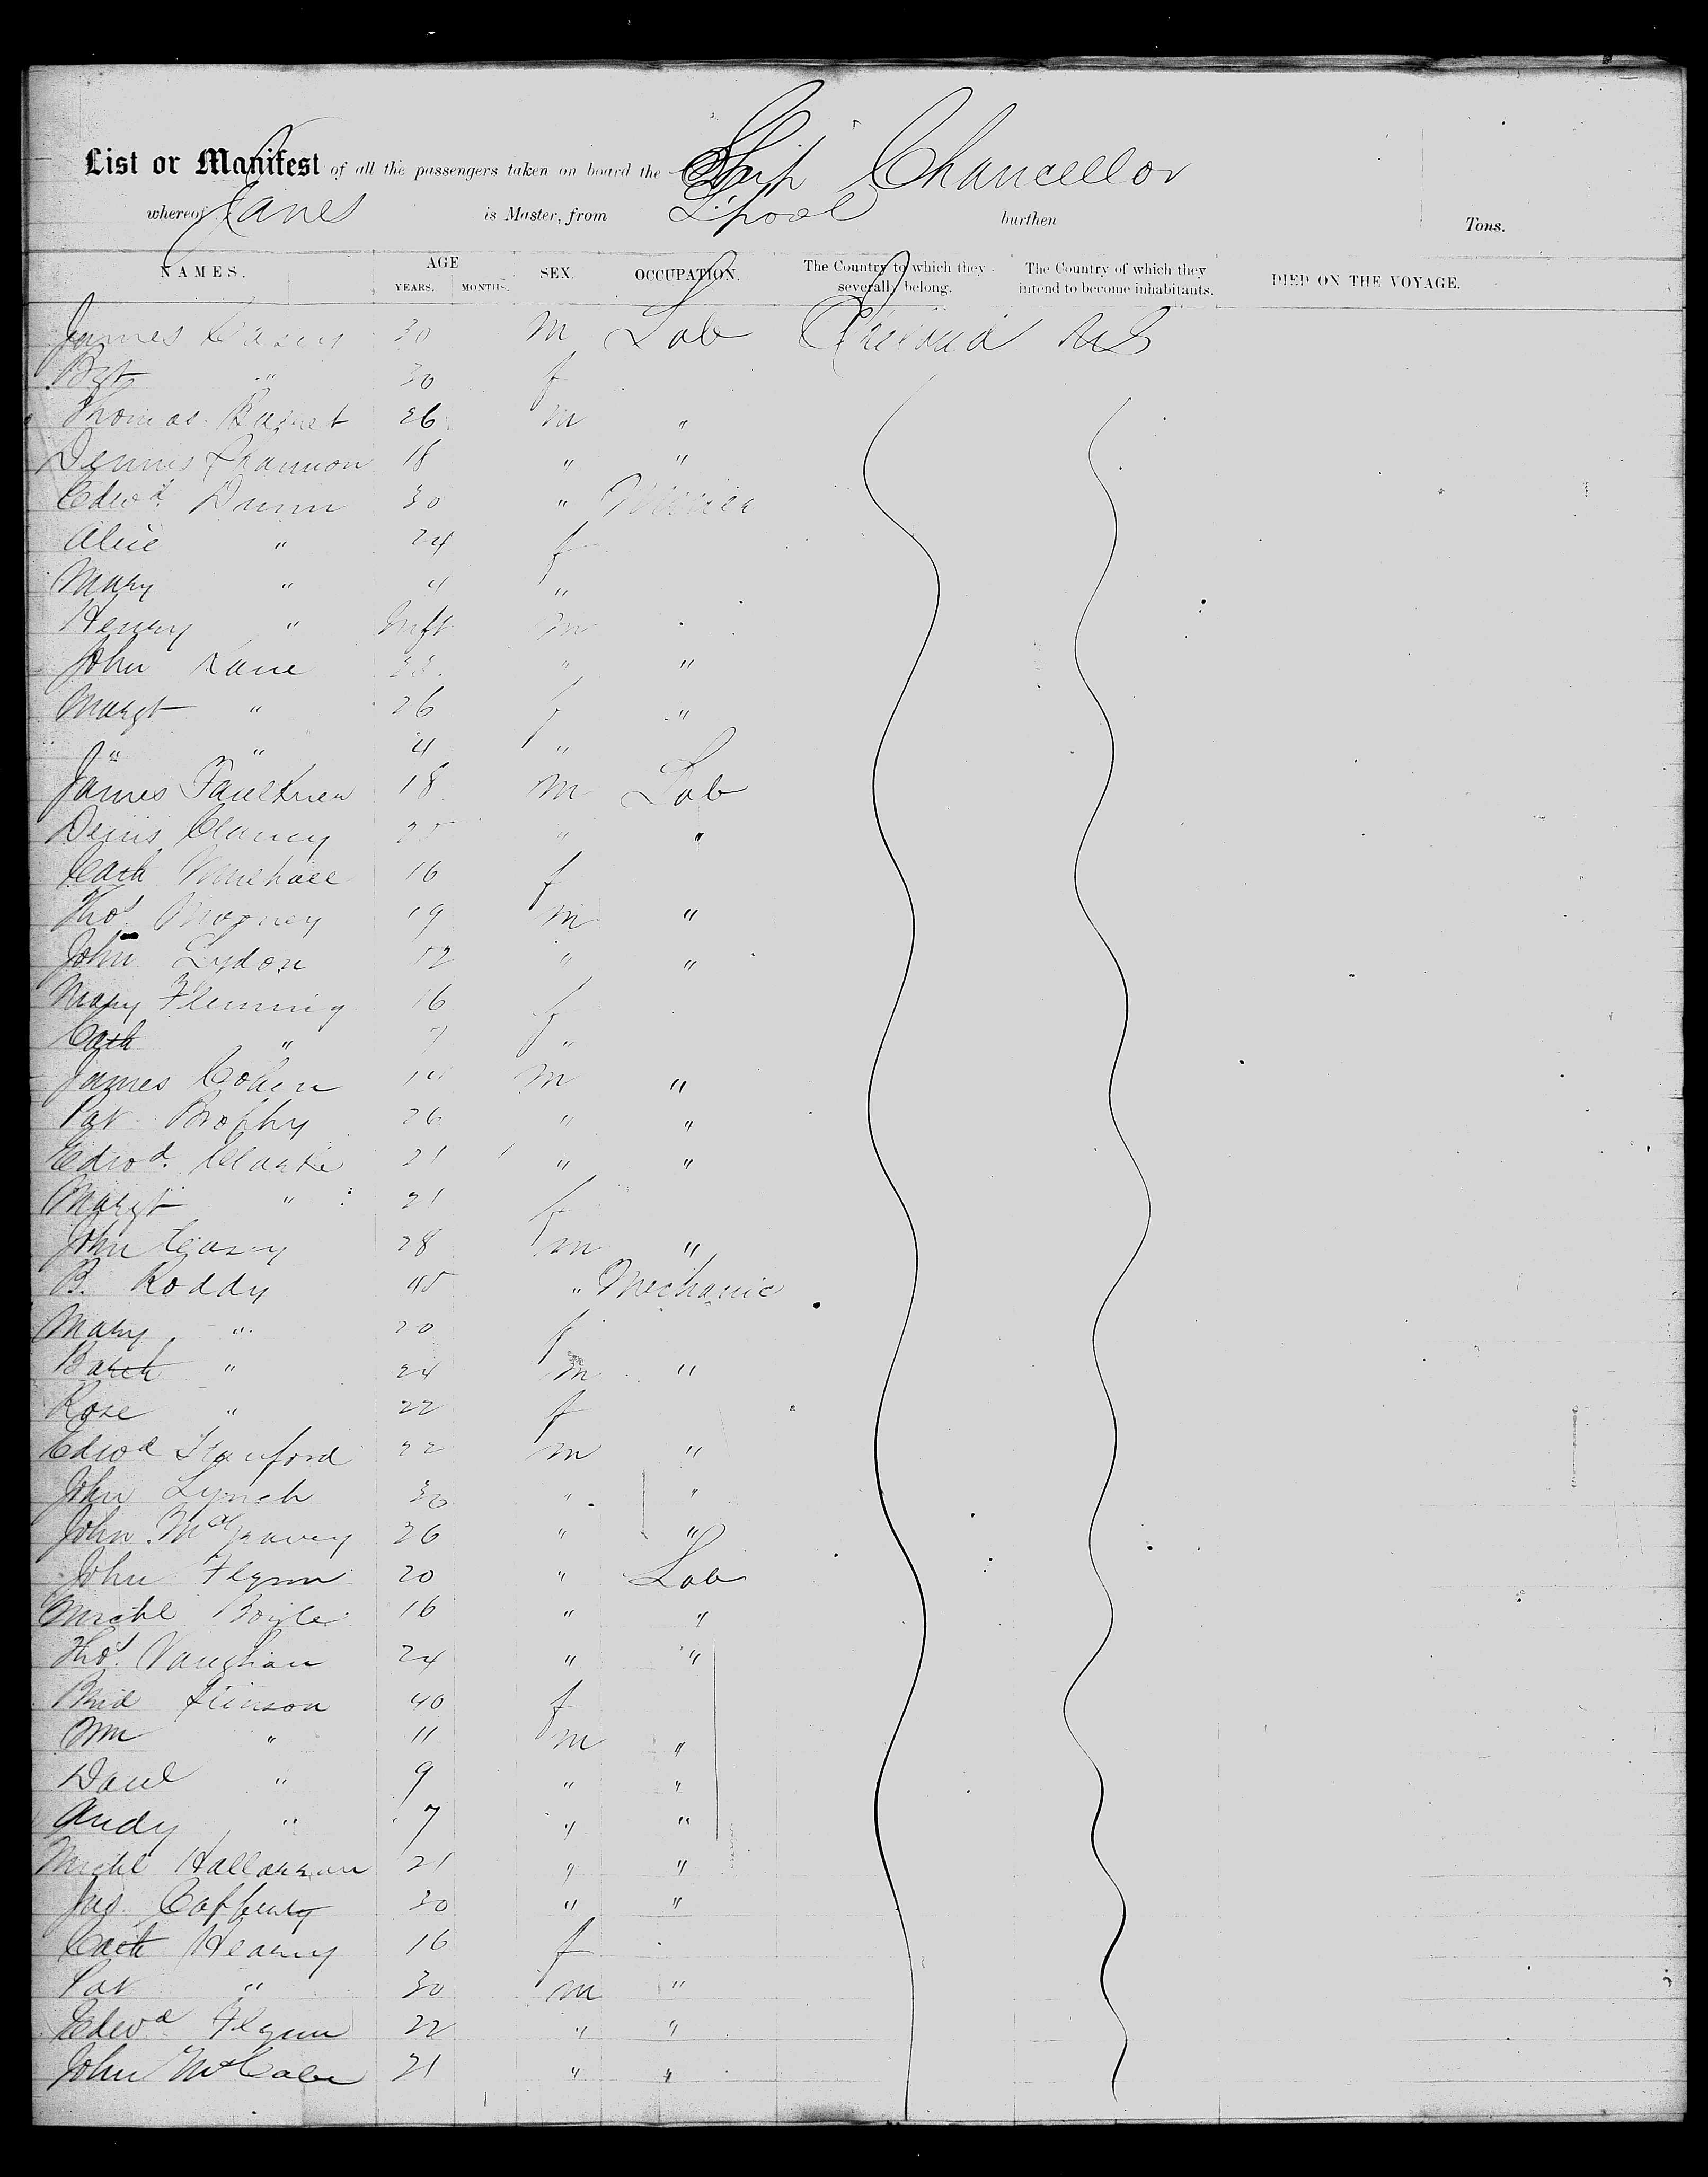 List or Manifest of all the passengers taken on board the Ship Chancellor
whereof Janes is Master, from L'pool burthen Tons.
NAMES. AGE YEARS. MONTHS. SEX. OCCUPATION. The Country to which they severally belong. The Country of which they intend to become inhabitants. DIED ON THE VOYAGE.
James Casey 30 m Lab Ireland US
Bgt " 30 f
Thomas 26 m "
Dennis Shannon 18 " "
Edwd. Dunn 30 "
Alice " 24 f
Mary " 4 "
Henry " Inft m
John Kane " "
Margt " 26 f "
" " 4 "
James Faulkner 18 m Lab
Denis Clancy 25 " "
Cath 16 f
Thos Mooney 19 m "
John Lydon 12 " "
Mary Fleming 16 f
Cath " 7 f "
James m "
Pat Brophy 26 " "
Edwd. Clarke 21 " "
Margt " 21 f
John Casey 28 m "
B. Roddy 45 " Mechanic
Mary " 20 f
" 24 m "
Rose " 22 f
Edwd Stanford 22 m "
John Lynch 30 " "
John 26 " "
John Flynn 20 " Lab
Michl Boyle 16 " "
Thos. Vaughan 24 " "
Brid 40 f
Wm " 11 m "
Danl " 9 " "
Andy " 7 " "
Michl 21 " "
Jas. 30 " "
Cath 16 f
Pat " 30 m "
Edwd Flynn 22 " "
John McCabe 21 " "